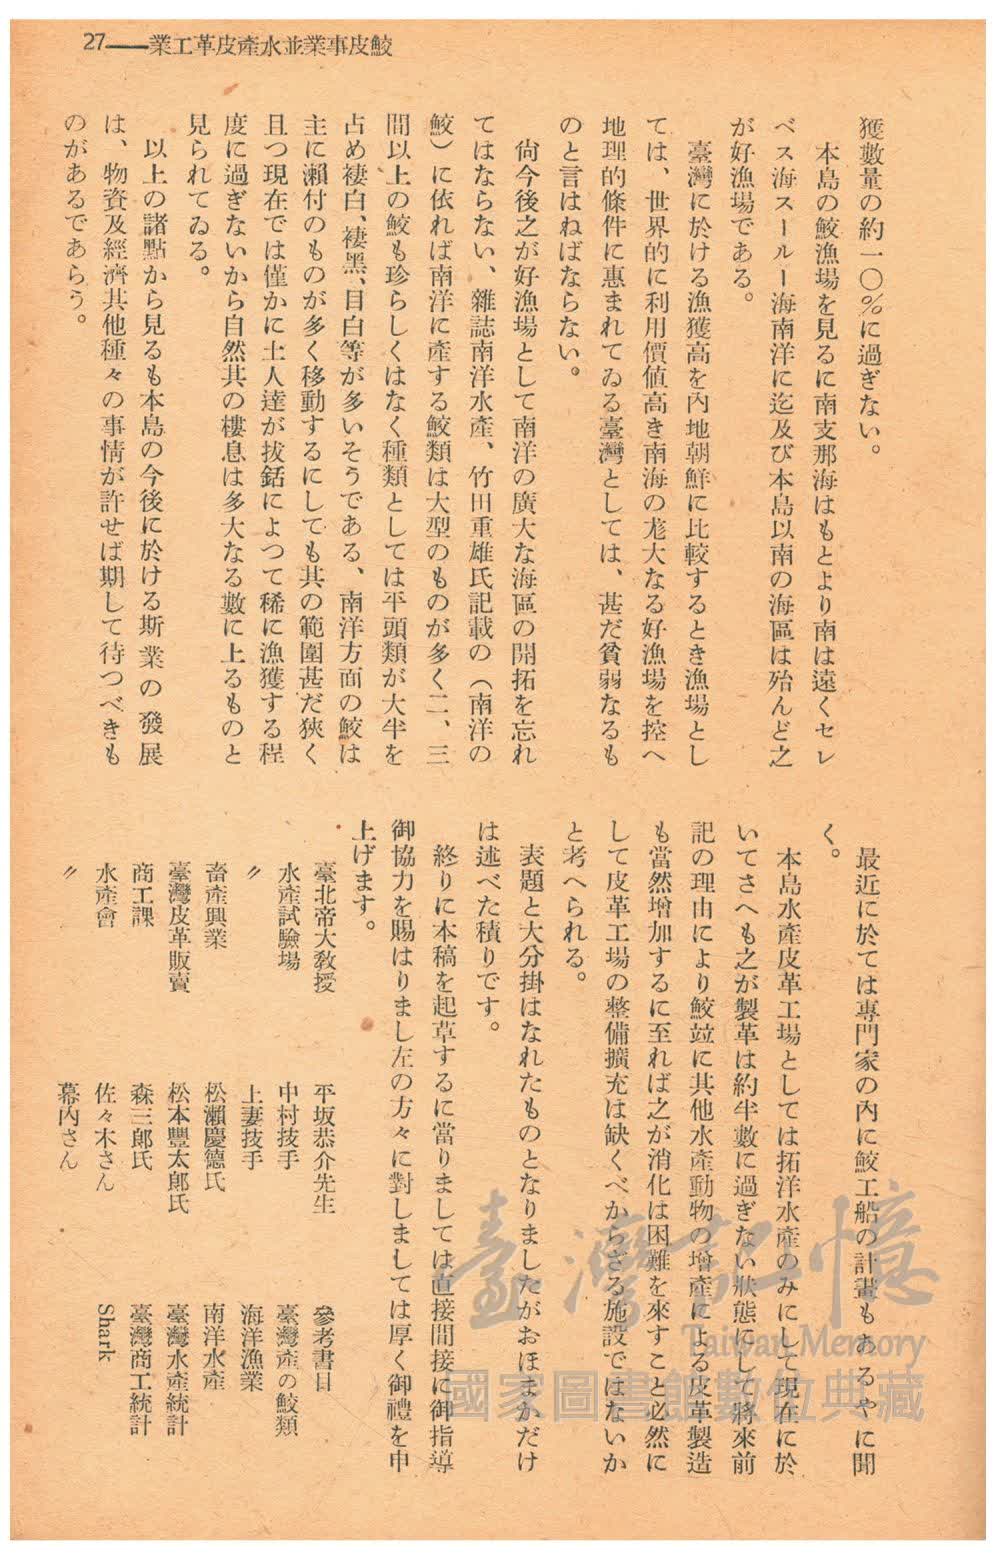 27——業工革皮產水並業事皮鮫
獲數量の約一〇％に過ぎない。
本島の鮫漁場を見るに南支那海はもとより南は遠くセレ
ベス海スールー海南洋に迄及び本島以南の海區は殆んど之
が好漁場である。
臺灣に於ける漁獲高を內地朝鮮に比較するとき漁場とし
ては、世界的に利用價値高き南海の尨大なる好漁場を控へ
地理的條件に惠まれてゐる臺灣としては、甚だ貧弱なるも
のと言はねばならない。
尙今後之が好漁場として南洋の廣大な海區の開拓を忘れ
てはならない、雜誌南洋水產、竹田重雄氏記載の（南洋の
鮫）に依れば南洋に產する鮫類は大型のものが多く二、三
間以上の鮫も珍らしくはなく種類としては平頭類が大半を
占め褄白、褄黑、目白等が多いそうである、南洋方面の鮫は
主に瀨付のものが多く移動するにしても其の範圍甚だ狹く
且つ現在では僅かに土人達が拔銛によつて稀に漁獲する程
度に過ぎないから自然其の棲息は多大なる數に上るものと
見られてゐる。
以上の諸點から見るも本島の今後に於ける斯業の發展
は、物資及經濟其他種々の事情が許せば期して待つべきも
のがあるであらう。
最近に於ては專門家の內に鮫工船の計畫もあるやに聞
く。
本島水產皮革工場としては拓洋水產のみにして現在に於
いてさへも之が製革は約半數に過ぎない狀態にして將來前
記の理由により鮫竝に其他水產動物の增產による皮革製造
も當然增加するに至れば之が消化は困難を來すこと必然に
して皮革工場の整備擴充は缺くべからざる施設ではないか
と考へられる。
表題と大分掛はなれたものとなりましたがおほまかだけ
は述べた積りです。
終りに本稿を起草するに當りましては直接間接に御指導
御協力を賜はりまし左の方々に對しましては厚く御禮を申
上げます。
臺北帝大敎授　平坂恭介先生
水產試驗場　中村技手
〃　上妻技手
畜產興業　松瀨慶德氏
臺灣皮革販賣　松本豐太郞氏
商工課　森三郞氏
水產會　佐々木さん
〃　幕內さん
參考書目
臺灣產の鮫類
海洋漁業
南洋水產
臺灣水產統計
臺灣商工統計
Shark
臺灣記憶
Taiwan Memory
國家圖書館數位典藏